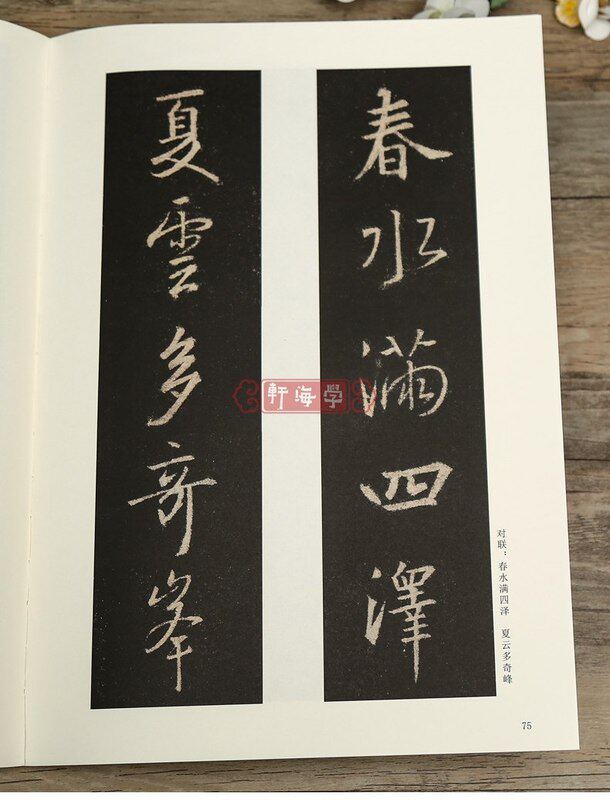 春水滿四澤
夏雲多奇峯
对联：春水满四泽　夏云多奇峰
75
軒海学